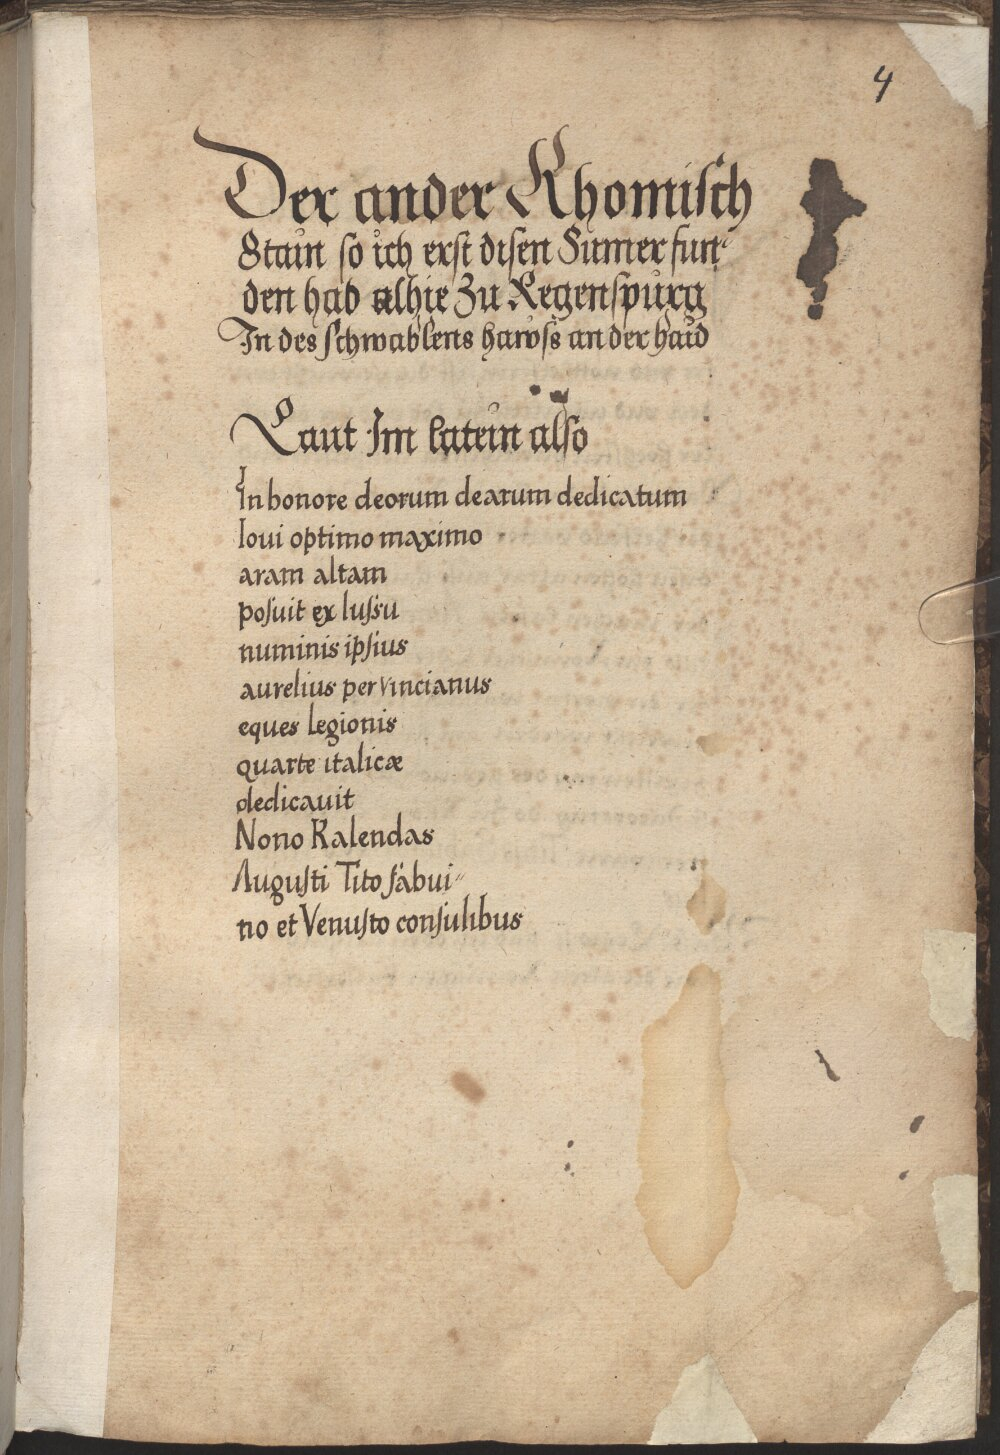 4
Der ander Rhomisch
Stain so ich erst disen Sumer fun-
den hab alhie Zu Regenspurg
In des schwablens hawss an der haid
Laut Im latein also
In honore deorum dearum dedicatum
Ioui optimo maximo
aram altam
posuit ex Iussu
numinis ipsius
aurelius pervincianus
eques legionis
quarte italicæ
dedicauit
Nono Kalendas
Augusti Tito fabui-
no et Venusto consulibus